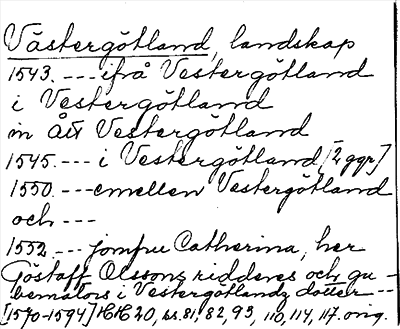 Västergötland, landskap
1543. --- ifrå Vestergötland
i Vestergötland
in ått Vestergötland
1545. --- i Vestergötland [2 ggr]
1550. --- emellen Vestergötland
och ---
1552. --- jomfru Catherina, her
Göstaff Olssons ridderes och gu-
bernators i Vestergötlandz dotter ---
[1570-1594] HH 20, ss. 81, 82, 93, 110, 114, 117. orig.